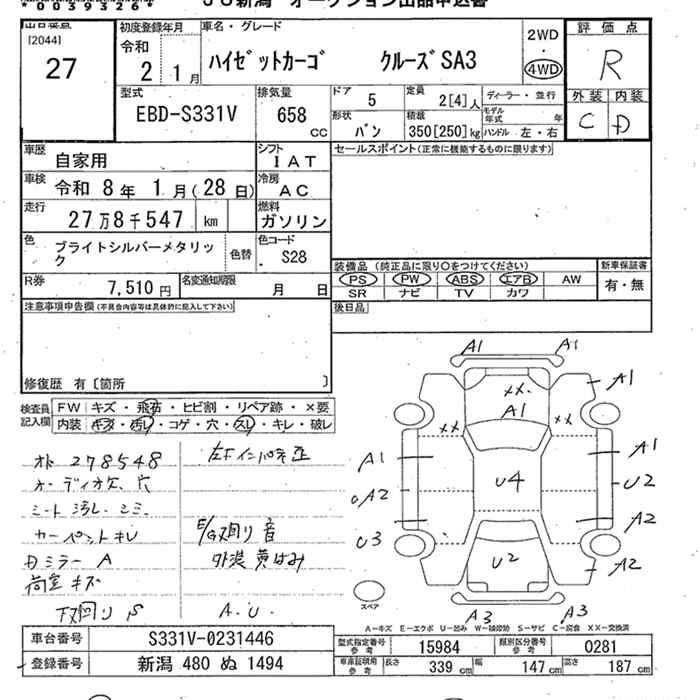 *00393264
JU新潟 オークション出品申込書
出品番号
[2044]
27
初度登録年月
令和
2 1月
車名・グレード
ハイゼットカーゴ クルーズSA3
2WD
・
4WD
評価点
R
外装 内装
C D
型式
EBD-S331V
排気量
658
CC
ドア
5
定員
2[4]人
ディーラー・並行
モデル年式 年
形状
バン
積載
350[250]kg
ハンドル 左・右
車歴
自家用
シフト
IAT
セールスポイント(正常に機能するものに限ります)
車検
令和 8年 1月(28日)
冷房
AC
走行
27万8千547 km
燃料
ガソリン
色
ブライトシルバーメタリック
色替
色コード
S28
装備品 (純正品に限り○をつけてください)
新車保証書
PS PW ABS エアB AW
有・無
SR ナビ TV カワ
R券
7,510円
名変通知期限
月 日
後日品
注意事項申告欄(不具合内容等は具体的に記入して下さい)
修復歴 有〔箇所 〕
検査員記入欄
FW キズ・飛石・ヒビ割・リペア跡・×要
内装 キズ・汚レ・コゲ・穴・スレ・キレ・破レ
278548
左Fインパネ歪
オーディオ欠、穴
シート汚レ、シミ、
カーペットキレ
E/G下廻り音
外装黄ばみ
Dミラー A
荷室キズ
下廻りS
A.U.
A1 A1
A1
XX
A1
XX XX
A1 A1
U4
U2
A2
A2
U3
U2
A2
A3 A3
スペア
A-キズ E-エクボ U-凹み W-補修跡 S-サビ C-腐食 XX-交換済
車台番号
S331V-0231446
型式指定番号
参考
15984
類別区分番号
参考
0281
登録番号
新潟 480 ぬ 1494
車庫証明用
参考
長さ
339 cm
幅
147 cm
高さ
187 cm